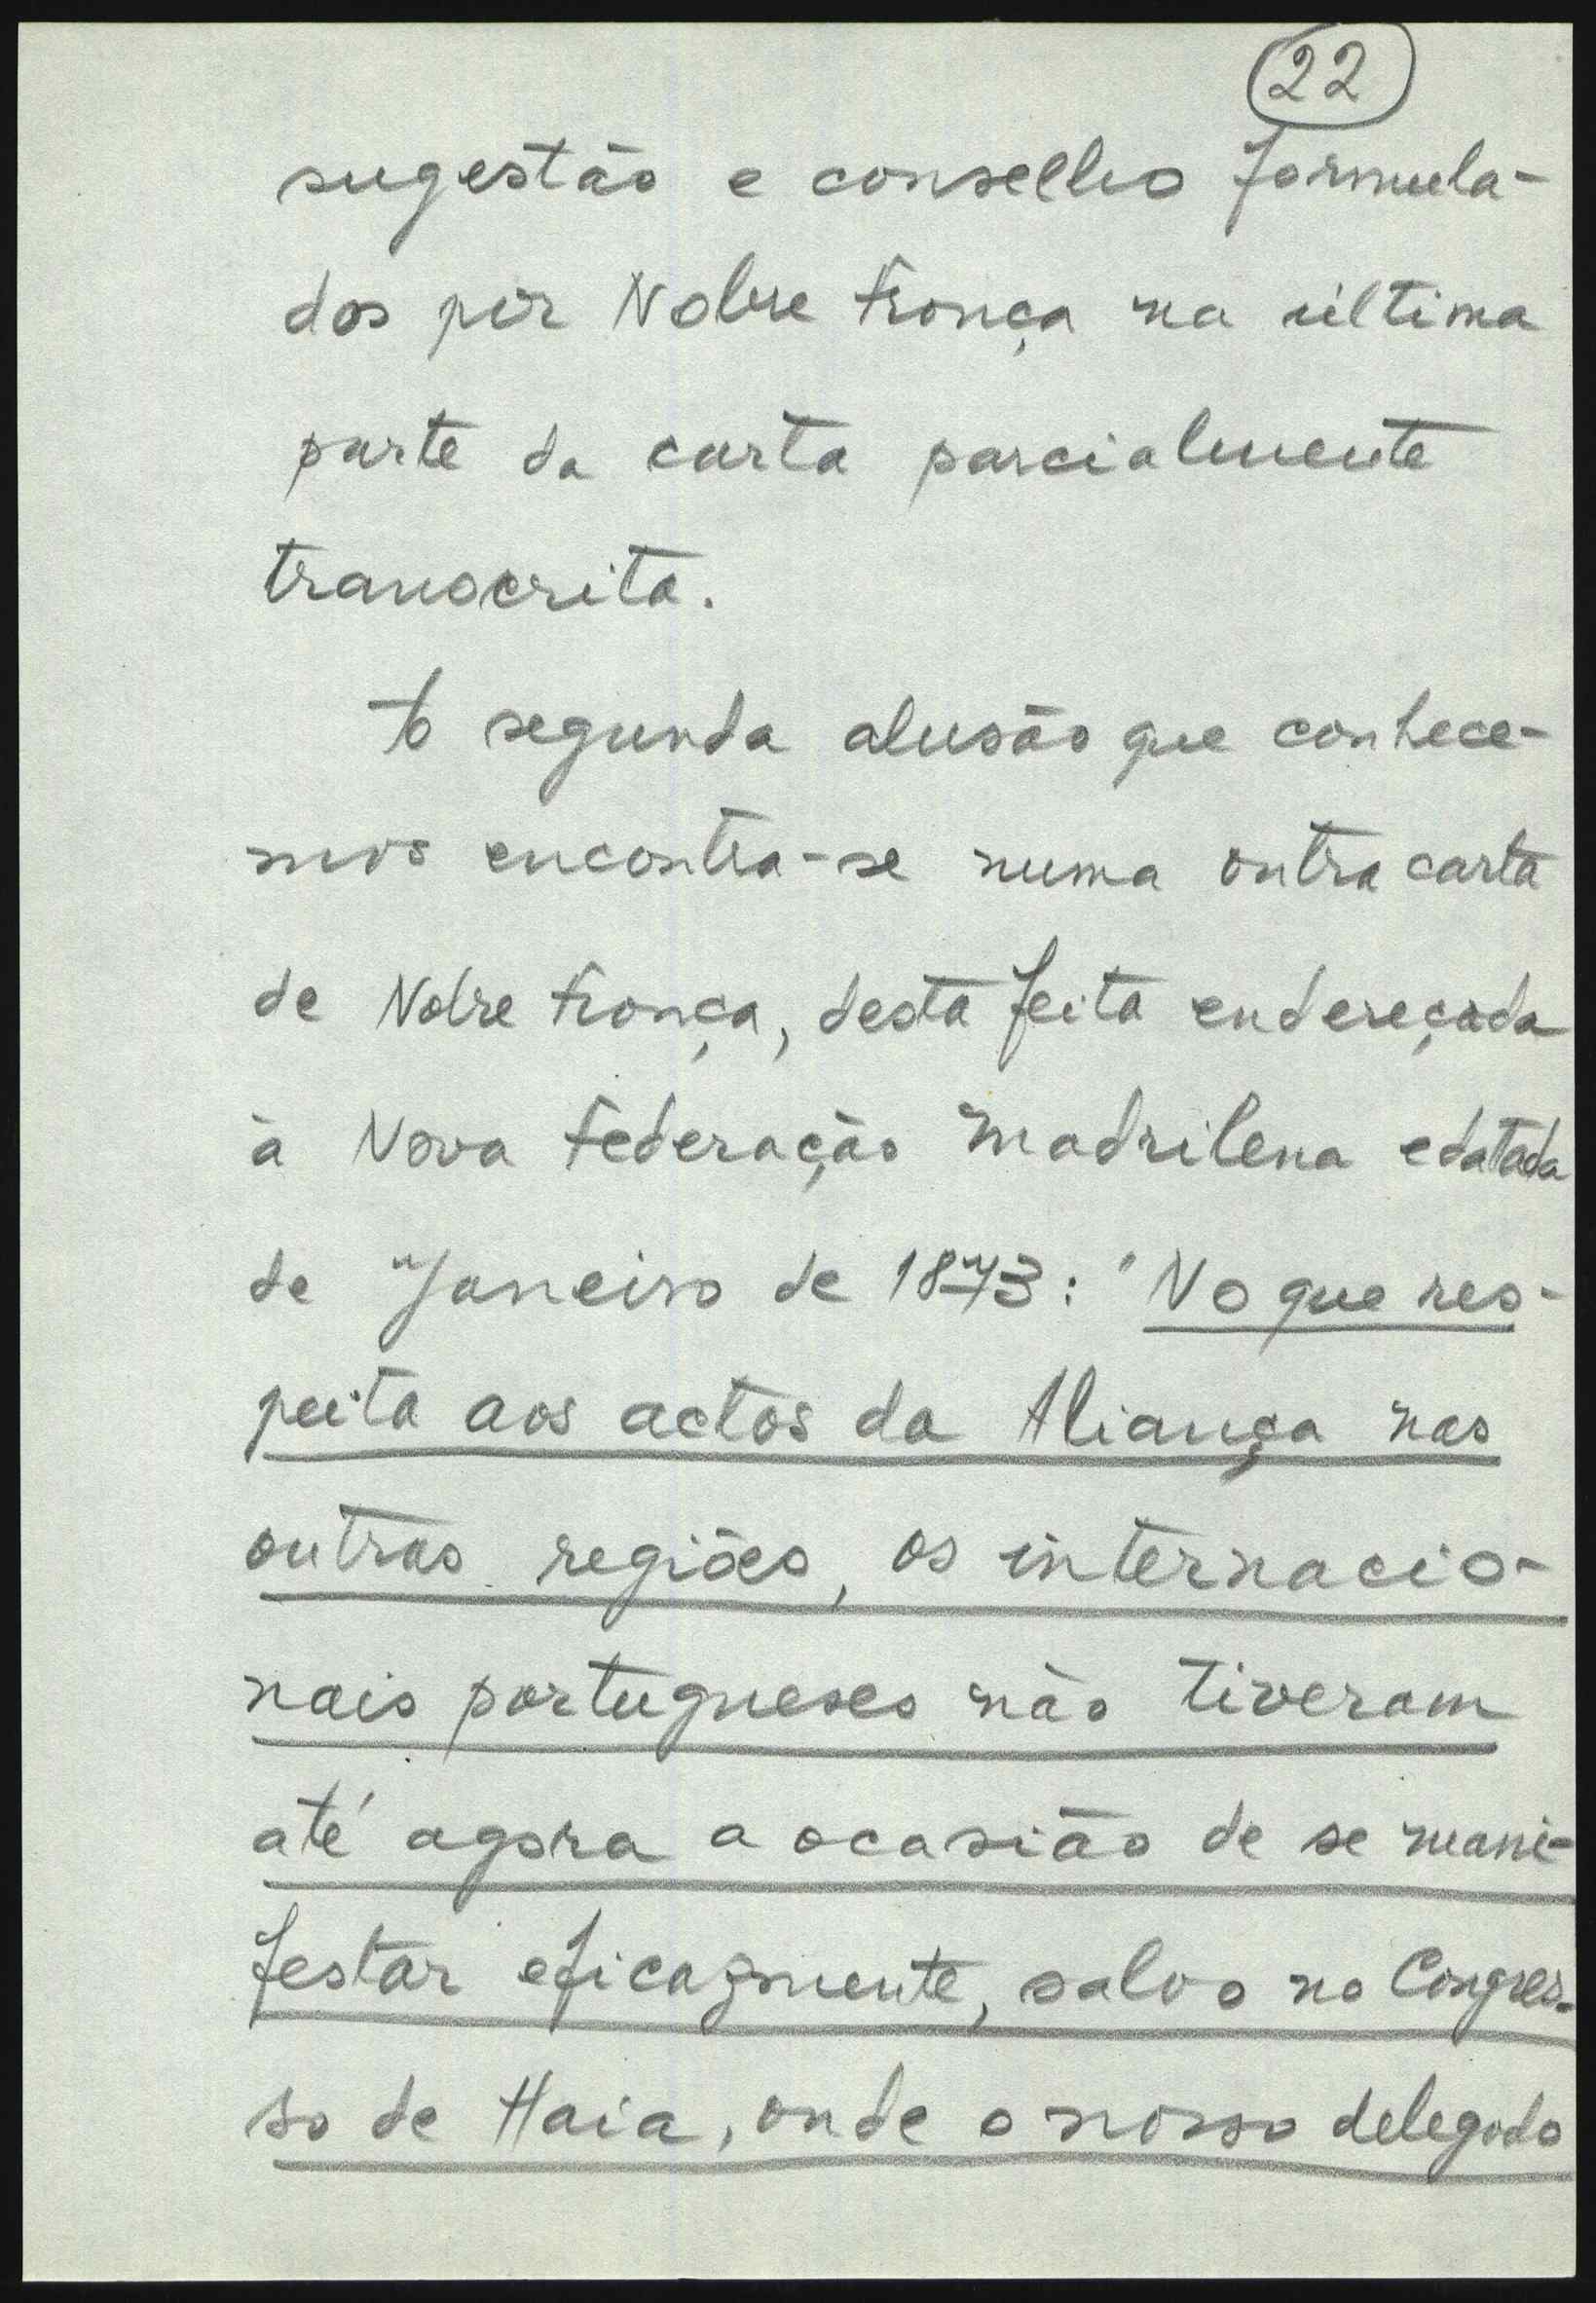 22
sugestão e conselho formula-
dos por Nobre França na última
parte da carta parcialmente
transcrita.
A segunda alusão que conhece-
mos encontra-se numa outra carta
de Nobre França, desta feita endereçada
à Nova Federação Madrilena e datada
de Janeiro de 1873: "No que res-
peita aos actos da Aliança nas
outras regiões, os internacio-
nais portugueses não tiveram
até agora a ocasião de se mani-
festar eficazmente, salvo no Congres-
so de Haia, onde o nosso delegado